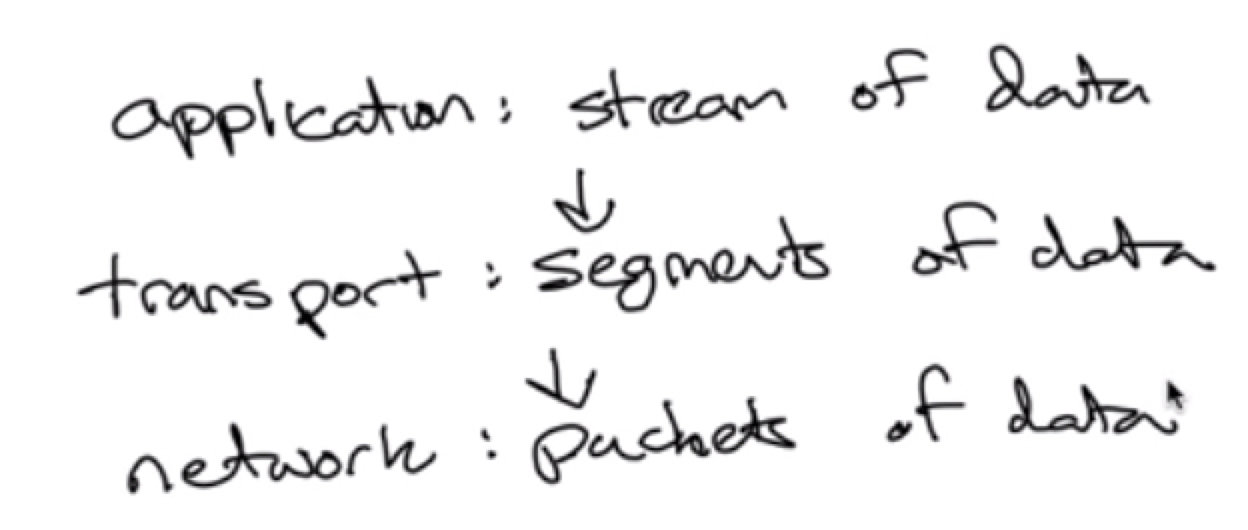 application: stream of data
↓
transport: segments of data
↓
network: packets of data